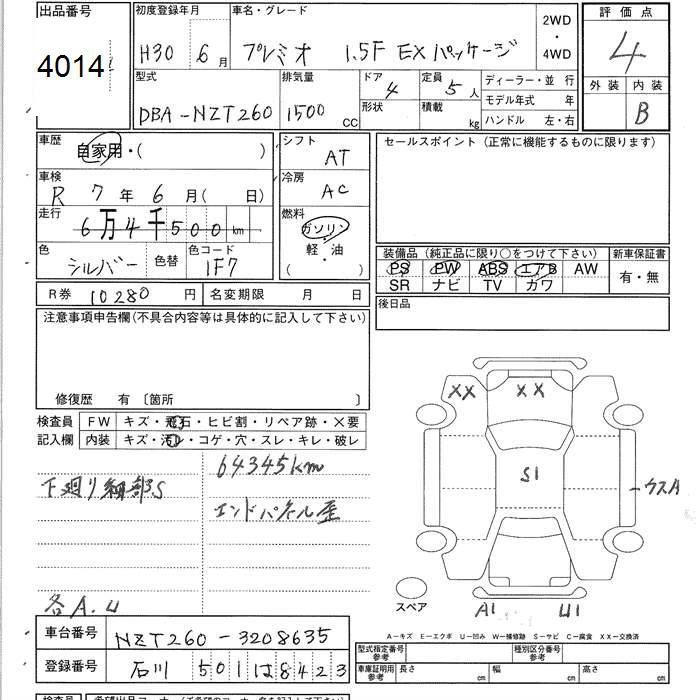 出品番号
4014
初度登録年月
H30 6月
車名・グレード
プレミオ 1.5F EXパッケージ
2WD
・
4WD
評価点
4
外装 内装
B
型式
DBA-NZT260
排気量
1500 CC
ドア
4
形状
定員
5人
積載
kg
ディーラー・並行
モデル年式 年
ハンドル 左・右
車歴
自家用・( )
車検
R 7年 6月( 日)
走行
6万4千500km
色
シルバー 色替
色コード
1F7
シフト
AT
冷房
AC
燃料
ガソリン
・
軽・油
( )
セールスポイント (正常に機能するものに限ります)
装備品 (純正品に限り○をつけて下さい)
新車保証書
PS PW ABS エアB AW
SR ナビ TV カワ
有・無
R券 10280 円
名変期限 月 日
後日品
注意事項申告欄(不具合内容等は具体的に記入して下さい)
修復歴 有 〔箇所 〕
検査員
記入欄
FW キズ・飛石・ヒビ割・リペア跡・×要
内装 キズ・汚レ・コゲ・穴・スレ・キレ・破レ
64345km
下廻り細部S
エンドパネル歪
各A.U
XX XX
S1
ウスA
スペア
A1 U1
A-キズ E-エクボ U-凹み W-補修跡 S-サビ C-腐食 XX-交換済
車台番号 NZT260-3208635
登録番号 石川 501 は 8423
型式指定番号
参考
種別区分番号
参考
車庫証明用
参考
長さ cm 幅 cm 高さ cm